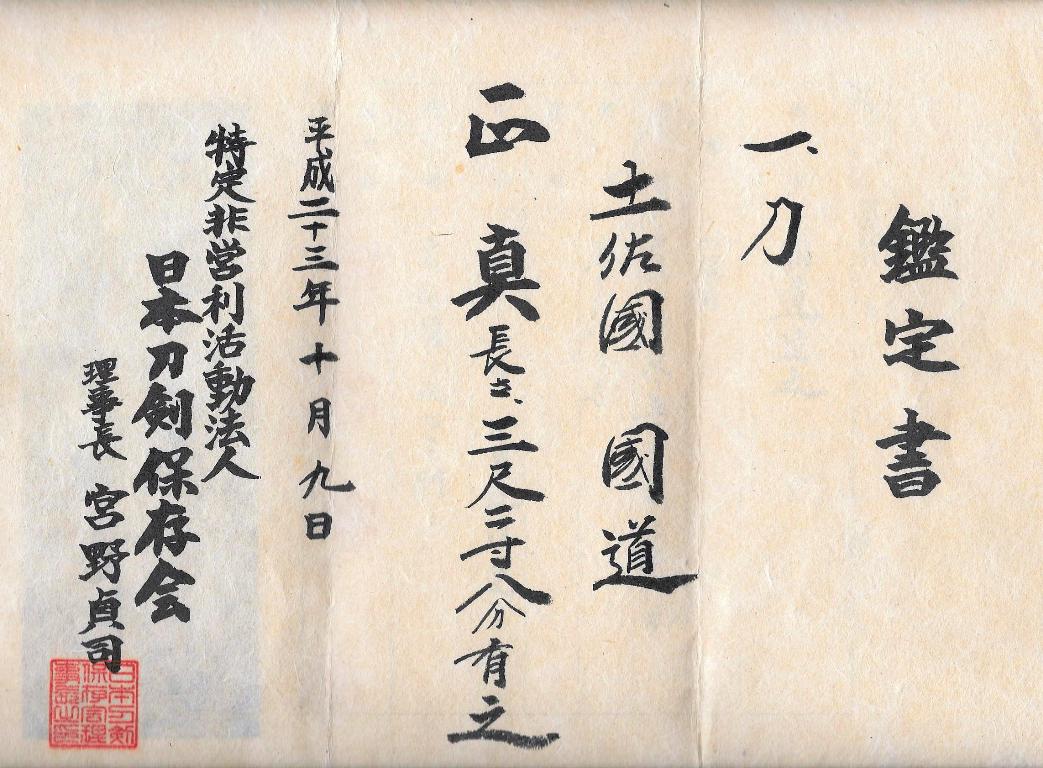 鑑定書
一、刀
土佐國 國道
正真 長さ、三尺二寸八分有之
平成二十三年十月九日
特定非営利活動法人
日本刀剣保存会
理事長 宮野貞司
日本刀剣
保存会理
事長之印